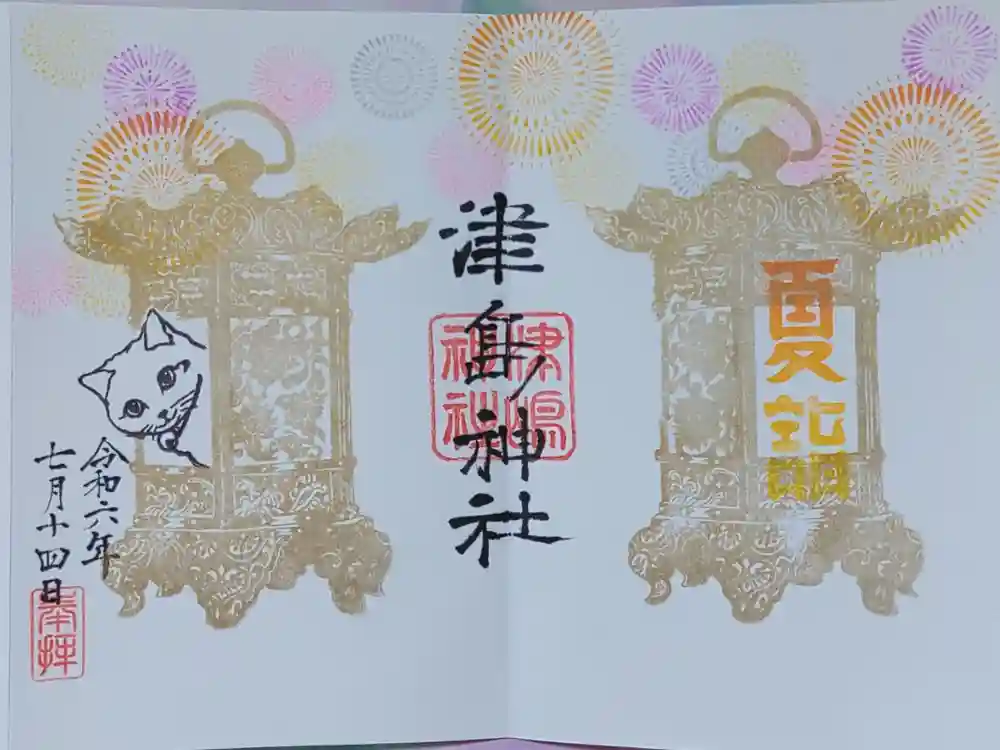 夏詣
津島神社
津嶋
神社
令和六年
七月十四日
奉拝